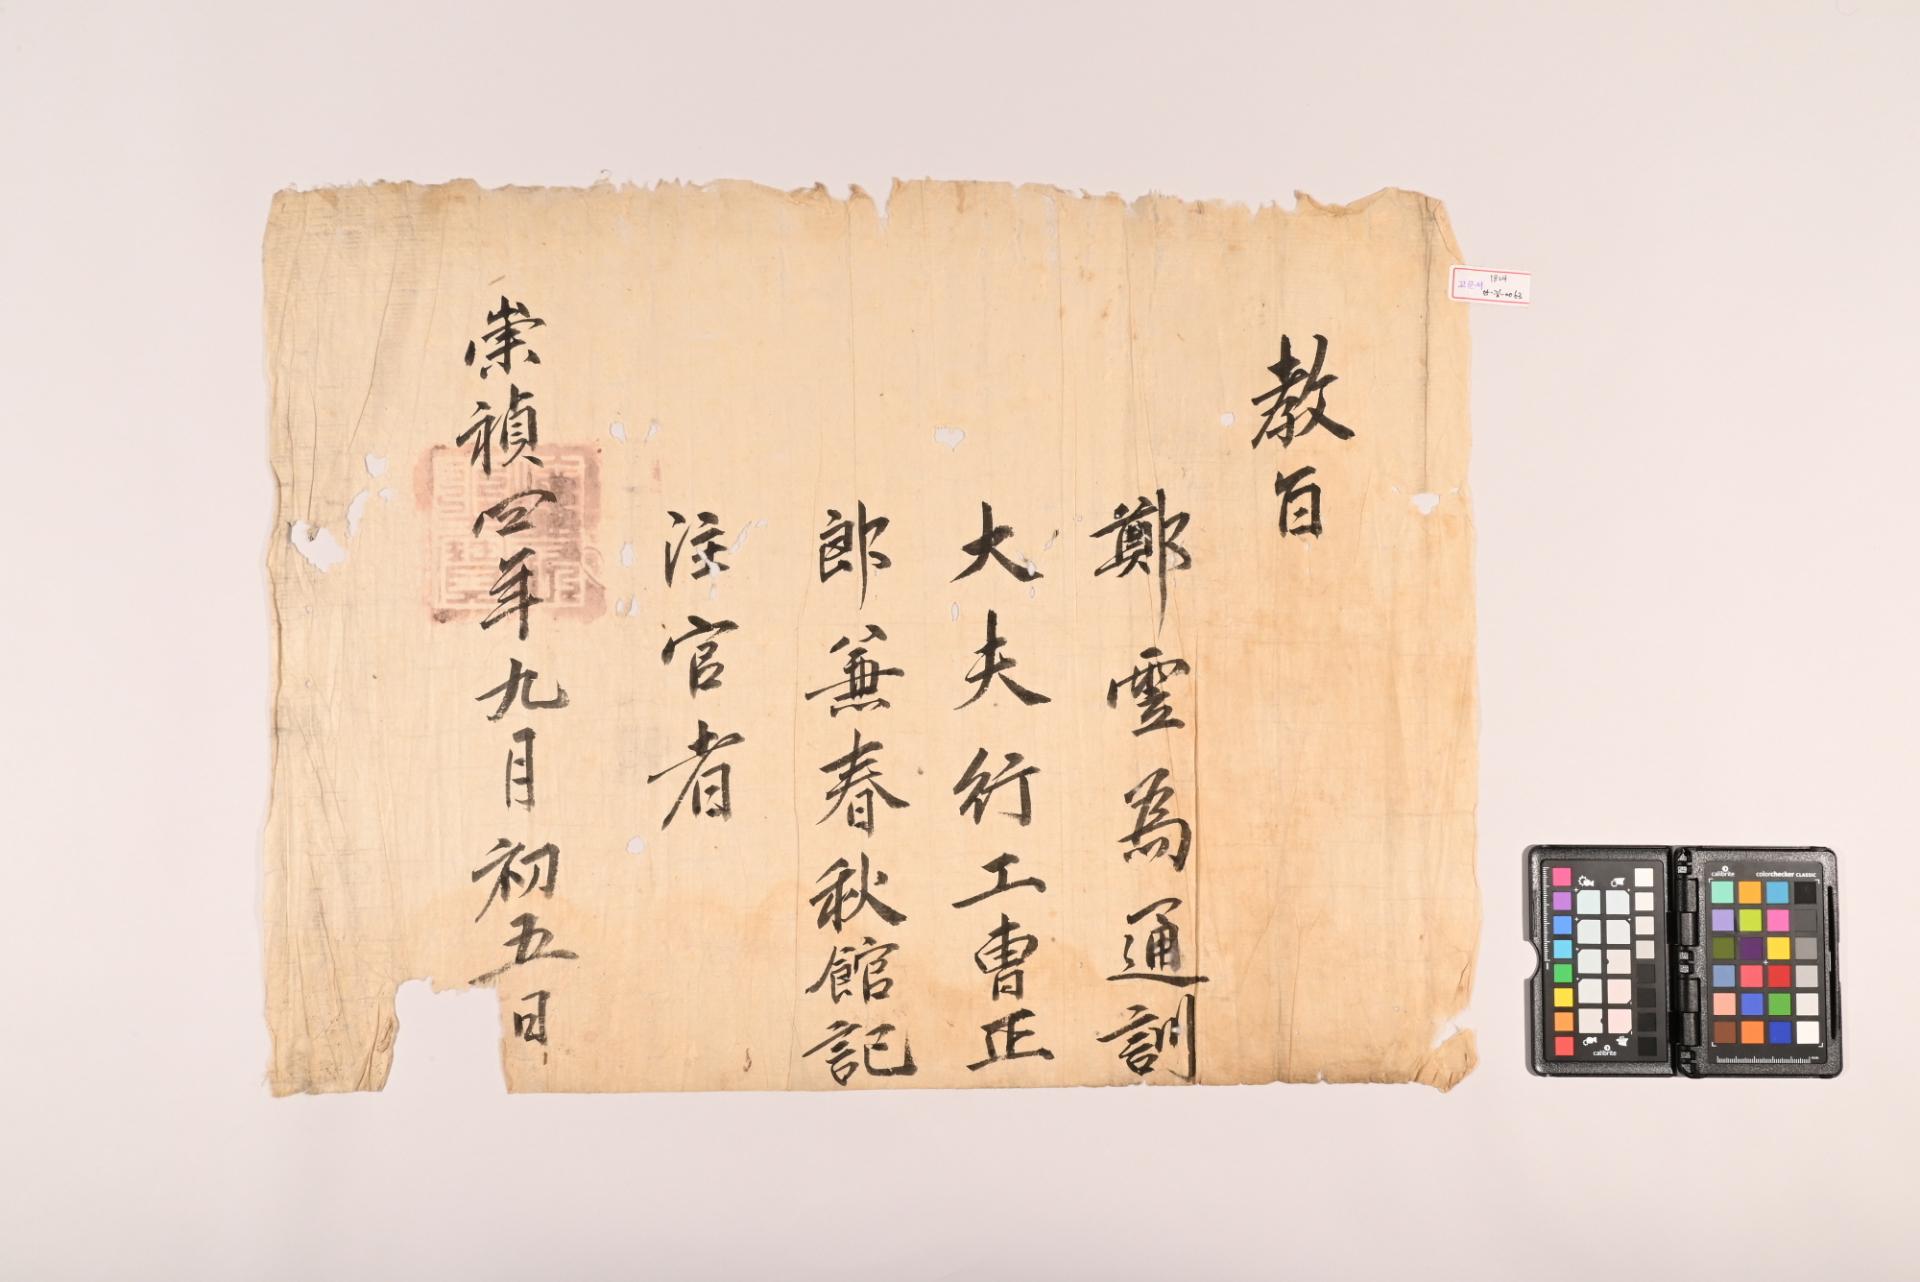 教旨
鄭雲為通訓
大夫行工曹正
郎兼春秋館記
注官者
崇禎四年九月初五日
고문서
calibrite
calibrite
colorchecker CLASSIC